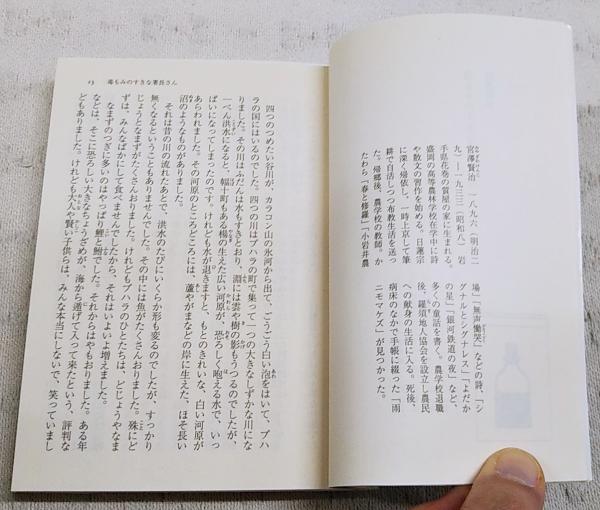 宮澤賢治 一八九六(明治二
九)―一九三三(昭和八) 岩
手県花巻の質屋の家に生まれる。
盛岡の高等農林学校在学中に詩
や散文の習作を始める。日蓮宗
に深く帰依し、一時上京して筆
耕で自活しつつ布教生活を送っ
た。帰郷後、農学校の教師。か
たわら「春と修羅」「小岩井農
場」「無声慟哭」などの詩、「シ
グナルとシグナレス」「よだか
の星」「銀河鉄道の夜」など、
多くの童話を書く。農学校退職
後、羅須地人協会を設立し農民
への献身の生活に入る。死後、
病床のなかで手帳に綴った「雨
ニモマケズ」が見つかった。
13 毒もみのすきな署長さん
四つのつめたい谷川が、カラコン山の氷河から出て、ごうごう白い泡をはいて、プハ
ラの国にはいるのでした。四つの川はプハラの町で集って一つの大きなしずかな川にな
りました。その川はふだんは水もすきとおり、淵には雲や樹の影もうつるのでしたが、
一ぺん洪水になると、幅十町もある楊の生えた広い河原が、恐ろしく咆える水で、いっ
ぱいになってしまったのです。けれども水が退きますと、もとのきれいな、白い河原が
あらわれました。その河原のところどころには、蘆やがまなどの岸に生えた、ほそ長い
沼のようなものがありました。
それは昔の川の流れたあとで、洪水のたびにいくらか形も変るのでしたが、すっかり
無くなるということもありませんでした。その中には魚がたくさんおりました。殊にど
じょうとなまずがたくさんおりました。けれどもプハラのひとたちは、どじょうやなま
ずは、みんなばかにして食べませんでしたから、それはいよいよ増えました。
なまずのつぎに多いのはやっぱり鯉と鮒でした。それからはやもおりました。ある年
などは、そこに恐ろしい大きなちょうざめが、海から遁げて入って来たという、評判な
どもありました。けれども大人や賢い子供らは、みんな本当にしないで、笑っていまし